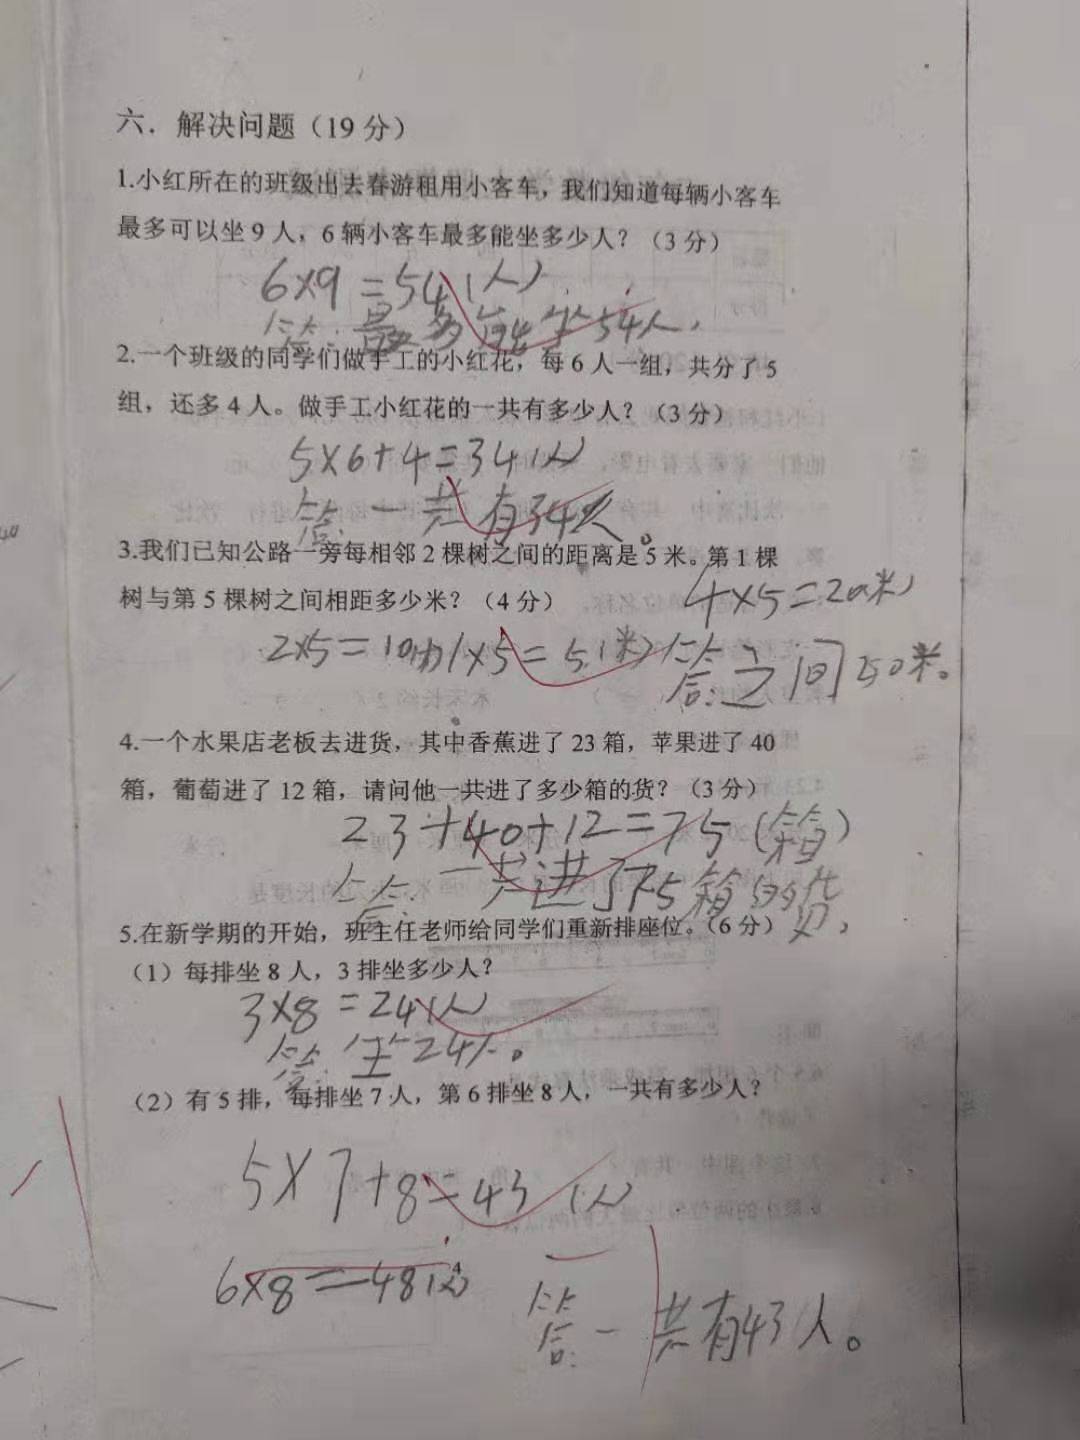 六．解决问题（19 分）
1.小红所在的班级出去春游租用小客车，我们知道每辆小客车
最多可以坐 9 人，6 辆小客车最多能坐多少人？（3 分）
6×9＝54（人）
答：最多能坐54人.
2.一个班级的同学们做手工的小红花，每 6 人一组，共分了 5
组，还多 4 人。做手工小红花的一共有多少人？（3 分）
5×6+4＝34（人）
答：一共有34人。
3.我们已知公路一旁每相邻 2 棵树之间的距离是 5 米。第 1 棵
树与第 5 棵树之间相距多少米？（4 分）
4×5＝20（米）
2×5＝10 1×5＝5（米）
答：之间50米。
4.一个水果店老板去进货，其中香蕉进了 23 箱，苹果进了 40
箱，葡萄进了 12 箱，请问他一共进了多少箱的货？（3 分）
23+40+12＝75（箱）
答：一共进了75箱的货，
5.在新学期的开始，班主任老师给同学们重新排座位。（6 分）
（1）每排坐 8 人，3 排坐多少人？
3×8＝24（人）
答：坐24人。
（2）有 5 排，每排坐 7 人，第 6 排坐 8 人，一共有多少人？
5×7+8＝43（人）
6×8＝48（人）
答：一共有43人。